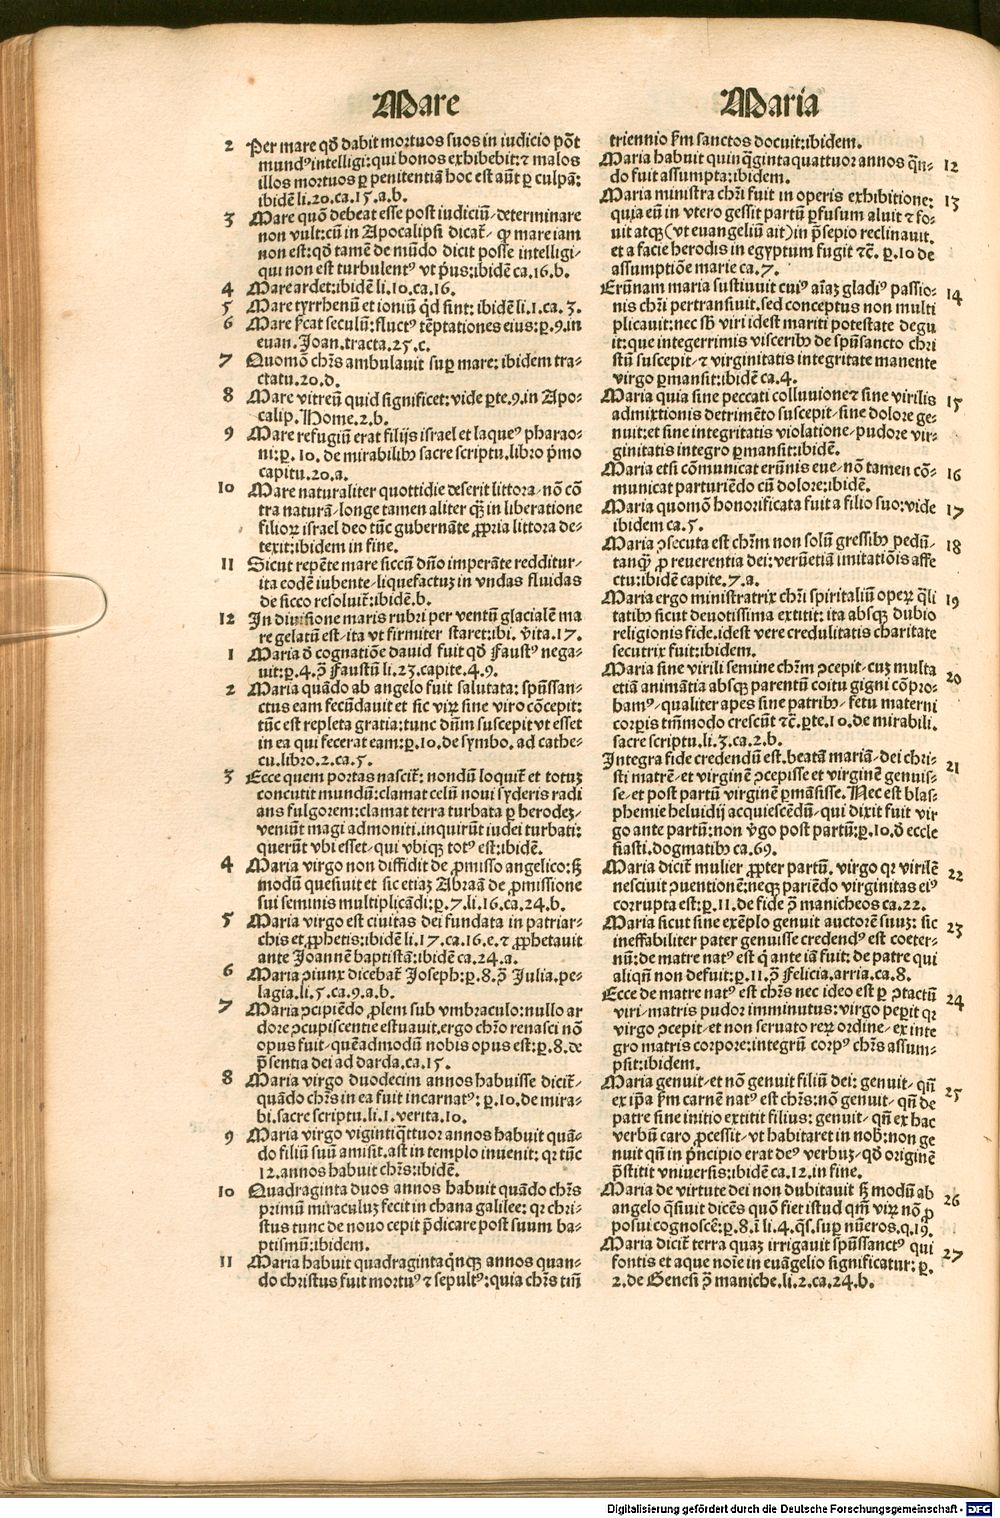 Mare
2 Per mare qd̃ dabit mortuos suos in iudicio põt
mundꝰ intelligi: qui bonos exhibebit: ⁊ malos
illos mortuos ꝑ penitentiã hoc est aũt ꝑ culpã:
ibidẽ li.20.ca.15.a.b.
3 Mare quõ debeat esse post iudiciũ/ determinare
non vult: cũ in Apocalipsi dicat̃/ ꝙ mare iam
non est: qd̃ tamẽ de mũdo dicit posse intelligi/
qui non est turbulentꝰ vt p̃us: ibidẽ ca.16.b.
4 Mare ardet: ibidẽ li.10.ca.16.
5 Mare tyrrhenũ et ioniũ qd̃ sint: ibidẽ li.1.ca.3.
6 Mare s̃cat seculũ: fluctꝰ tẽptationes eius: ꝑ.9.in
euan. Joan. tracta.25.c.
7 Quomõ chr̃s ambulauit suꝑ mare: ibidem tra-
ctatu.20.d.
8 Mare vitreũ quid significet: vide ꝑte.9.in Apo-
calip. Home.2.b.
9 Mare refugiũ erat filijs israel et laqueꝰ pharao-
ni: ꝑ.10. de mirabilibꝫ sacre scriptu. libro p̃mo
capitu.20.a.
10 Mare naturaliter quottidie deserit littora/ nõ cõ
tra naturã/ longe tamen aliter q̃ꝫ in liberatione
filioꝝ israel deo tũc gubernãte ꝓpria littora de-
texit: ibidem in fine.
11 Sicut repẽte mare siccũ dño imperãte redditur/
ita eodẽ iubente/ liquefactuꝫ in vndas fluidas
de sicco resoluit̃: ibidẽ.b.
12 In diuisione maris rubri per ventũ glacialẽ ma
re gelatũ est/ ita vt firmiter staret: ibi. v̓ita.17.
1 Maria d̃ cognatiõe dauid fuit qd̃ Faustꝰ nega-
uit: ꝑ.4.ↄ̃ Faustũ li.23.capite.4.9.
2 Maria quãdo ab angelo fuit salutata: spũssan-
ctus eam fecũdauit et sic viꝝ sine viro cõcepit:
tũc est repleta gratia: tunc dñm suscepit vt esset
in ea qui fecerat eam: ꝑ.10.de symbo. ad cathe-
cu.libro.2.ca.5.
3 Ecce quem portas nascit̃: nondũ loquit̃ et totuꝫ
concutit mundũ: clamat celũ noui syderis radi
ans fulgorem: clamat terra turbata ꝑ herodeꝫ/
veniũt magi admoniti. inquirũt iudei turbati:
querũt vbi esset/ qui vbiqꝫ totꝰ est: ibidẽ.
4 Maria virgo non diffidit de ꝓmisso angelico: sꝫ
modũ quesiuit et sic etiaꝫ Abraã de ꝓmissione
sui seminis multiplicãdi: ꝑ.7.li.16.ca.24.b.
5 Maria virgo est ciuitas dei fundata in patriar-
chis et ꝓphetis: ibidẽ li.17.ca.16.e.⁊ ꝓphetauit
ante Joannẽ baptistã: ibidẽ ca.24.a.
6 Maria ↄiunx dicebat̃ Joseph: ꝑ.8.ↄ̃ Julia. pe-
lagia.li.5.ca.9.a.b.
7 Maria ↄcipiẽdo ꝓlem sub vmbraculo: nullo ar
dore ↄcupiscentie estuauit. ergo chr̃o renasci nõ
opus fuit/ quẽadmodũ nobis opus est: ꝑ.8.de
p̃sentia dei ad darda.ca.15.
8 Maria virgo duodecim annos habuisse dicit̃/
quãdo chr̃s in ea fuit incarnatꝰ: ꝑ.10.de mira-
bi.sacre scriptu.li.1.verita.10.
9 Maria virgo vigintiq̃ttuor annos habuit quã-
do filiũ suũ amisit. ast in templo inuenit: qꝛ tũc
12.annos habuit chr̃s: ibidẽ.
10 Quadraginta duos annos habuit quãdo chr̃s
primũ miraculuꝫ fecit in chana galilee: qꝛ chri-
stus tunc de nouo cepit p̃dicare post suum ba-
ptismũ: ibidem.
11 Maria habuit quadragintaq̃nqꝫ annos quan-
do christus fuit mortuꝰ ⁊ sepultꝰ: quia chr̃s tm̃
Maria
triennio s̃m sanctos docuit: ibidem.
Maria habuit quinq̃gintaquattuor annos q̃n- 12
do fuit assumpta: ibidem.
Maria ministra chr̃i fuit in operis exhibitione: 13
quia eũ in vtero gessit partũ ꝑfusum aluit ⁊ fo-
uit atqꝫ (vt euangeliũ ait) in p̃sepio reclinauit.
et a facie herodis in egyptum fugit ⁊c̃. ꝑ.10 de
assumptiõe marie ca.7.
Erũnam maria sustinuit cuiꝰ aĩaꝫ gladiꝰ passio- 14
nis chr̃i pertransiuit. sed conceptus non multi
plicauit: nec sb̃ viri idest mariti potestate degu
it: que integerrimis visceribꝫ de spũsancto chri
stũ suscepit/ ⁊ virginitatis integritate manente
virgo ꝑmansit: ibidẽ ca.4.
Maria quia sine peccati colluuione ⁊ sine virilis 15
admixtionis detrimẽto suscepit/ sine dolore ge-
nuit: et sine integritatis violatione/ pudore vir-
ginitatis integro ꝑmansit: ibidẽ.
Maria etsi cõmunicat erũnis eue/ nõ tamen cõ- 16
municat parturiẽdo cũ dolore: ibidẽ.
Maria quomõ honorificata fuit a filio suo: vide 17
ibidem ca.5.
Maria ↄsecuta est chr̃m non solũ gressibꝫ pedũ/ 18
tanq̃ꝫ ꝓ reuerentia dei: verũetiã imitatiõis affe
ctu: ibidẽ capite.7.a.
Maria ergo ministratrix chr̃i spiritaliũ opeꝝ q̃li 19
tatibꝫ sicut deuotissima extitit: ita absqꝫ dubio
religionis fide. idest vere credulitatis charitate
secutrix fuit: ibidem.
Maria sine virili semine chr̃m ↄcepit/ cuꝫ multa 20
etiã animãtia absqꝫ parentũ coitu gigni cõpro-
bamꝰ/ qualiter apes sine patribꝫ/ fetu materni
corꝑis tm̃modo crescũt ⁊c̃. ꝑte.10.de mirabili.
sacre scriptu.li.3.ca.2.b.
Integra fide credendũ est. beatã mariã/ dei chri- 21
sti matrẽ/ et virginẽ ↄcepisse et virginẽ genuis-
se/ et post partũ virginẽ ꝑmãsisse. Nec est blas-
phemie heluidij acquiescẽdũ/ qui dixit fuit vir
go ante partũ: non v̓go post partũ: ꝑ.10.d̃ eccle
siasti.dogmatibꝫ ca.69.
Maria dicit̃ mulier ꝓpter partũ. virgo qꝛ virilẽ 22
nesciuit ↄuentionẽ: neqꝫ pariẽdo virginitas eiꝰ
corrupta est: ꝑ.11.de fide ↄ̃ manicheos ca.22.
Maria sicut sine exẽplo genuit auctorẽ suuꝫ: sic 23
ineffabiliter pater genuisse credendꝰ est coeter-
nũ: de matre natꝰ est q̃ ante iã fuit: de patre qui
aliqñ non defuit: ꝑ.11.ↄ̃ Felicia.arria.ca.8.
Ecce de matre natꝰ est chr̃s nec ideo est ꝑ ↄtactũ 24
viri/ matris pudor imminutus: virgo peꝑit qꝛ
virgo ↄcepit/ et non seruato reꝝ ordine/ ex inte
gro matris corpore: integrũ corpꝰ chr̃s assum-
psit: ibidem.
Maria genuit/ et nõ genuit filiũ dei: genuit/ qñ 25
ex ip̃a s̃m carnẽ natꝰ est chr̃s: nõ genuit/ qñ de
patre sine initio extitit filius: genuit/ qñ ex hac
verbũ caro ꝓcessit/ vt habitaret in nob̃: non ge
nuit qñ in p̃ncipio erat deꝰ verbuꝫ/ qd̃ originẽ
p̃stitit vniuersis: ibidẽ ca.12.in fine.
Maria de virtute dei non dubitauit sꝫ modũ ab 26
angelo q̃siuit dicẽs quõ fiet istud qm̃ viꝝ nõ ꝓ
posui cognoscẽ: ꝑ.8.i li.4.q̃s. suꝑ nũeros.q.19.
Maria dicit̃ terra quaꝫ irrigauit spũssanctꝰ qui 27
fontis et aque noĩe in euãgelio significatur: ꝑ.
2.de Genesi ↄ̃ maniche.li.2.ca.24.b.
Digitalisierung gefördert durch die Deutsche Forschungsgemeinschaft - DFG